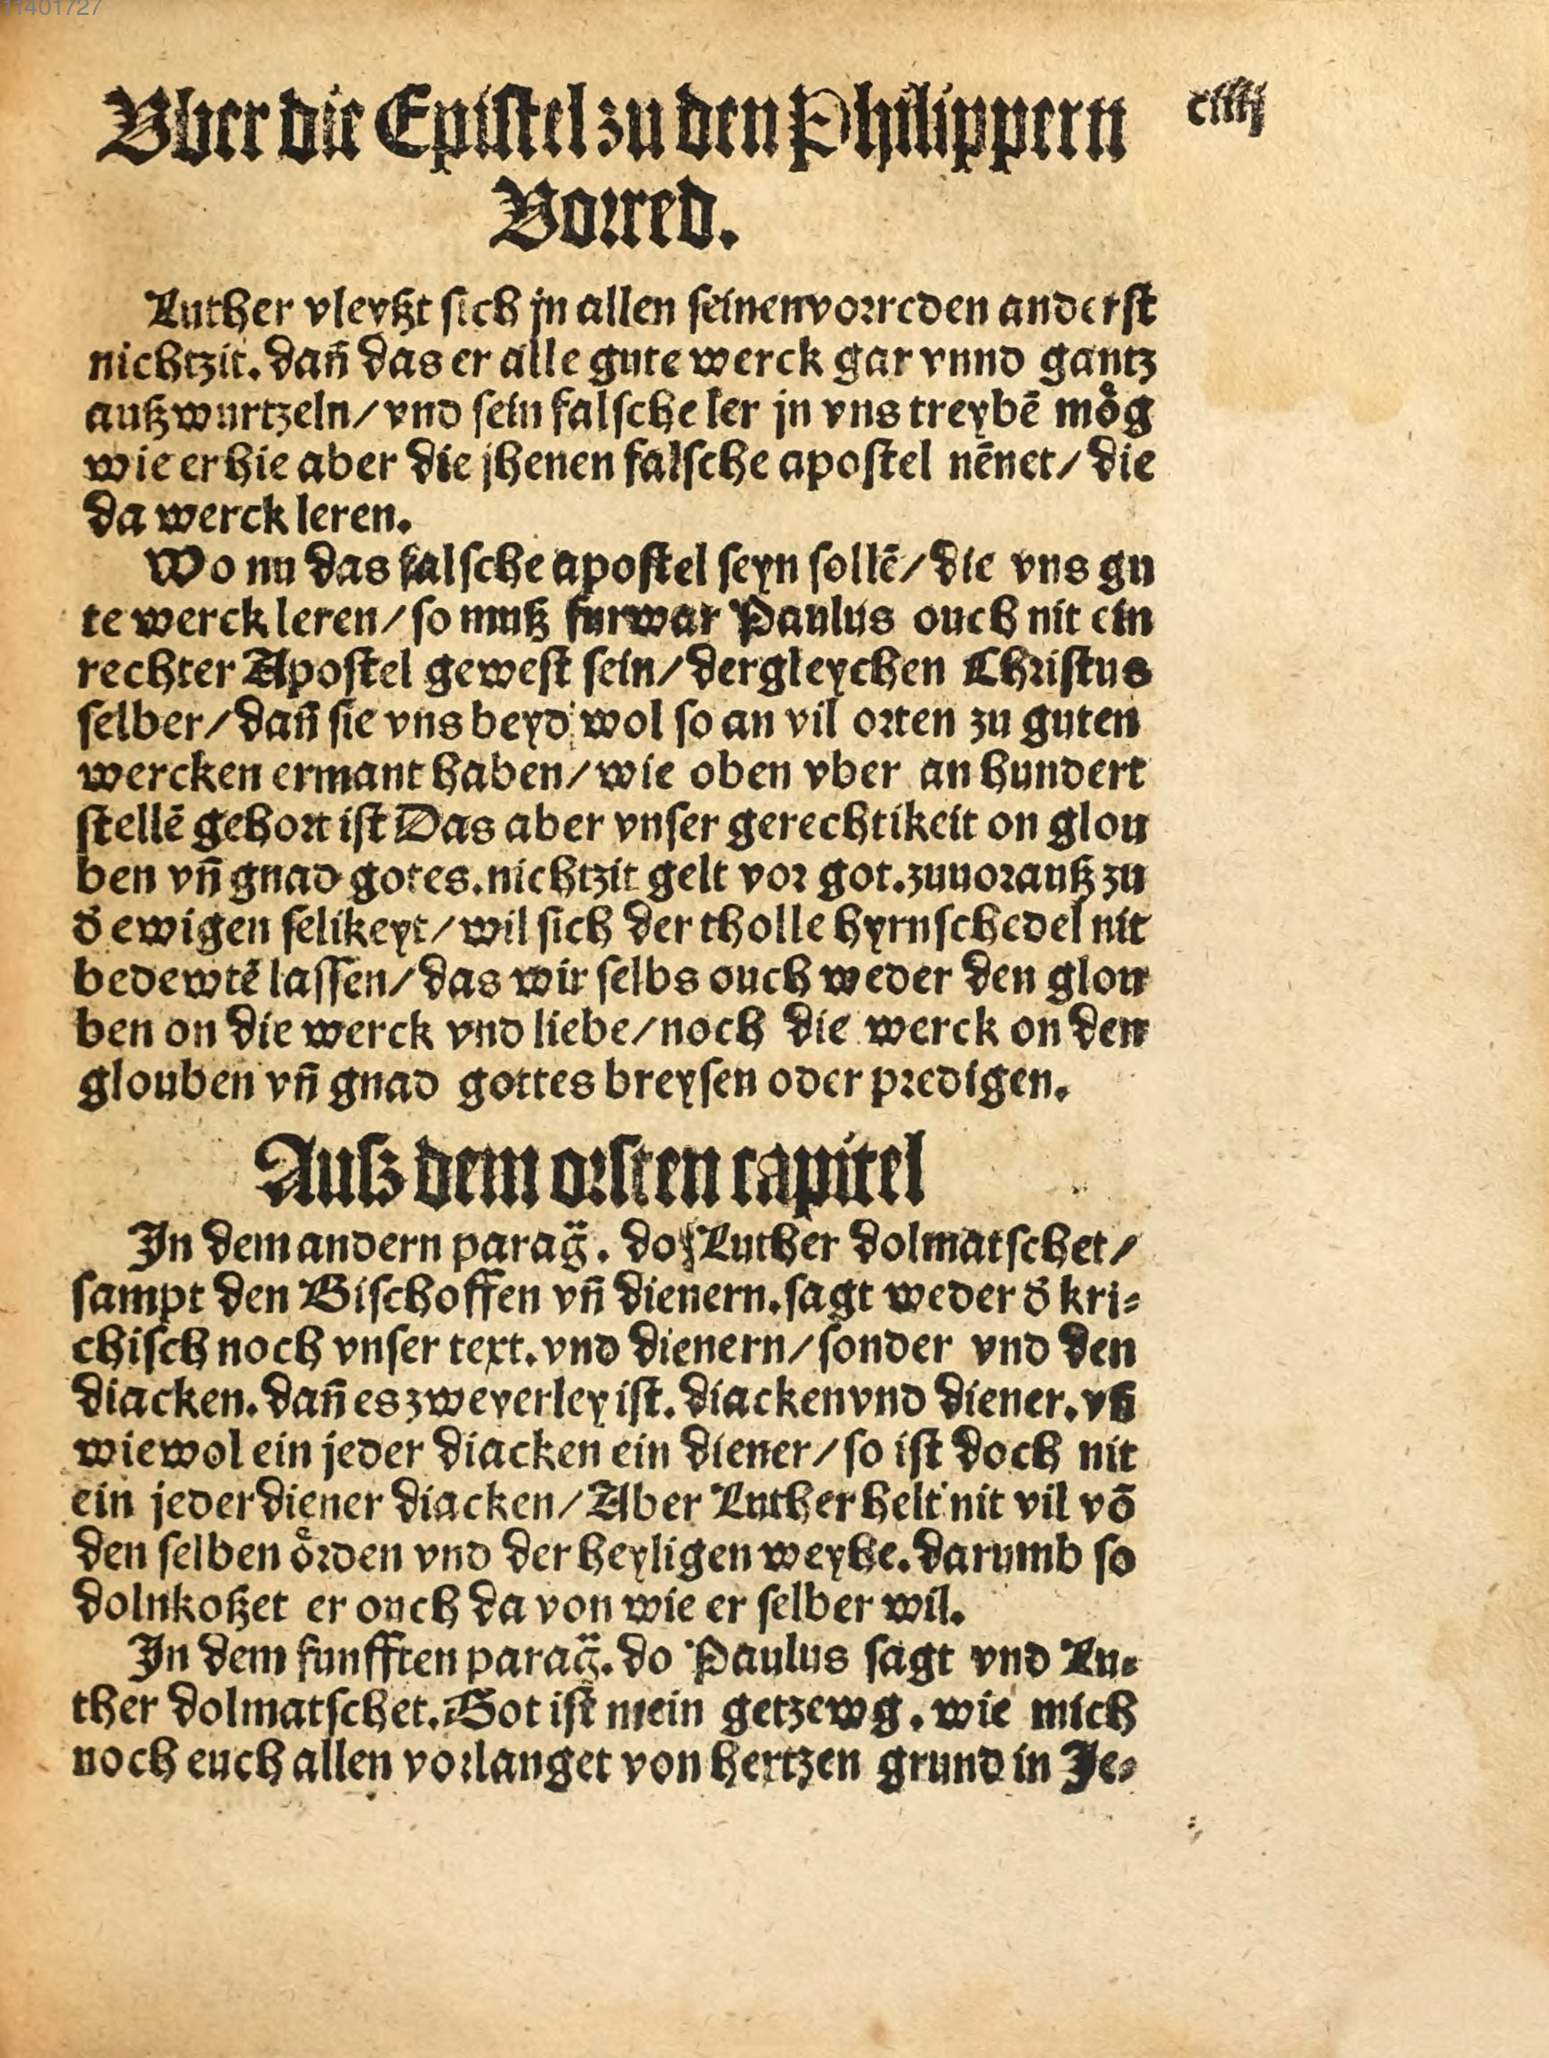 11401727
Vber die Epistel zu den Philippern
ciiij
Vorred.
Luther vleyßt sich jn allen seinen vorreden anderst
nichtzit. dañ das er alle gute werck gar vnnd gantz
außwurtzeln/ vnd sein falsche ler jn vns treybē moͤg
wie er hie aber die jhenen falsche apostel nēnet/ die
da werck leren.
Wo nu das falsche apostel seyn sollē/ die vns gu
te werck leren/ so muß furwar Paulus ouch nit ein
rechter Apostel gewest sein/ dergleychen Christus
selber/ dañ sie vns beyd wol so an vil orten zu guten
wercken ermant haben/ wie oben vber an hundert
stellē gehort ist Das aber vnser gerechtikeit on glou
ben vñ gnad gotes. nichtzit gelt vor got. zuuorauß zu
d̕ ewigen felikeyt/ wil sich der tholle hyrnschedel nit
bedewtē lassen/ das wir selbs ouch weder den glou
ben on die werck vnd liebe/ noch die werck on den
glouben vñ gnad gottes breysen oder predigen.
Auß dem orsten capitel
In dem andern parag̃. do Luther dolmatschet/
sampt den Bischoffen vñ dienern. sagt weder d̕ kri-
chisch noch vnser text. vnd dienern/ sonder vnd den
diacken. dañ es zweyerley ist. diacken vnd diener. vñ
wiewol ein jeder diacken ein diener/ so ist doch nit
ein jeder diener diacken/ Aber Luther helt nit vil vō
den selben oͤrden vnd der heyligen weyhe. darumb so
dolnkoßet er ouch da von wie er selber wil.
In dem funfften parag̃. do Paulus sagt vnd Lu-
ther dolmatschet. Got ist mein getzewg. wie mich
noch euch allen vorlanget von hertzen grund in Je-